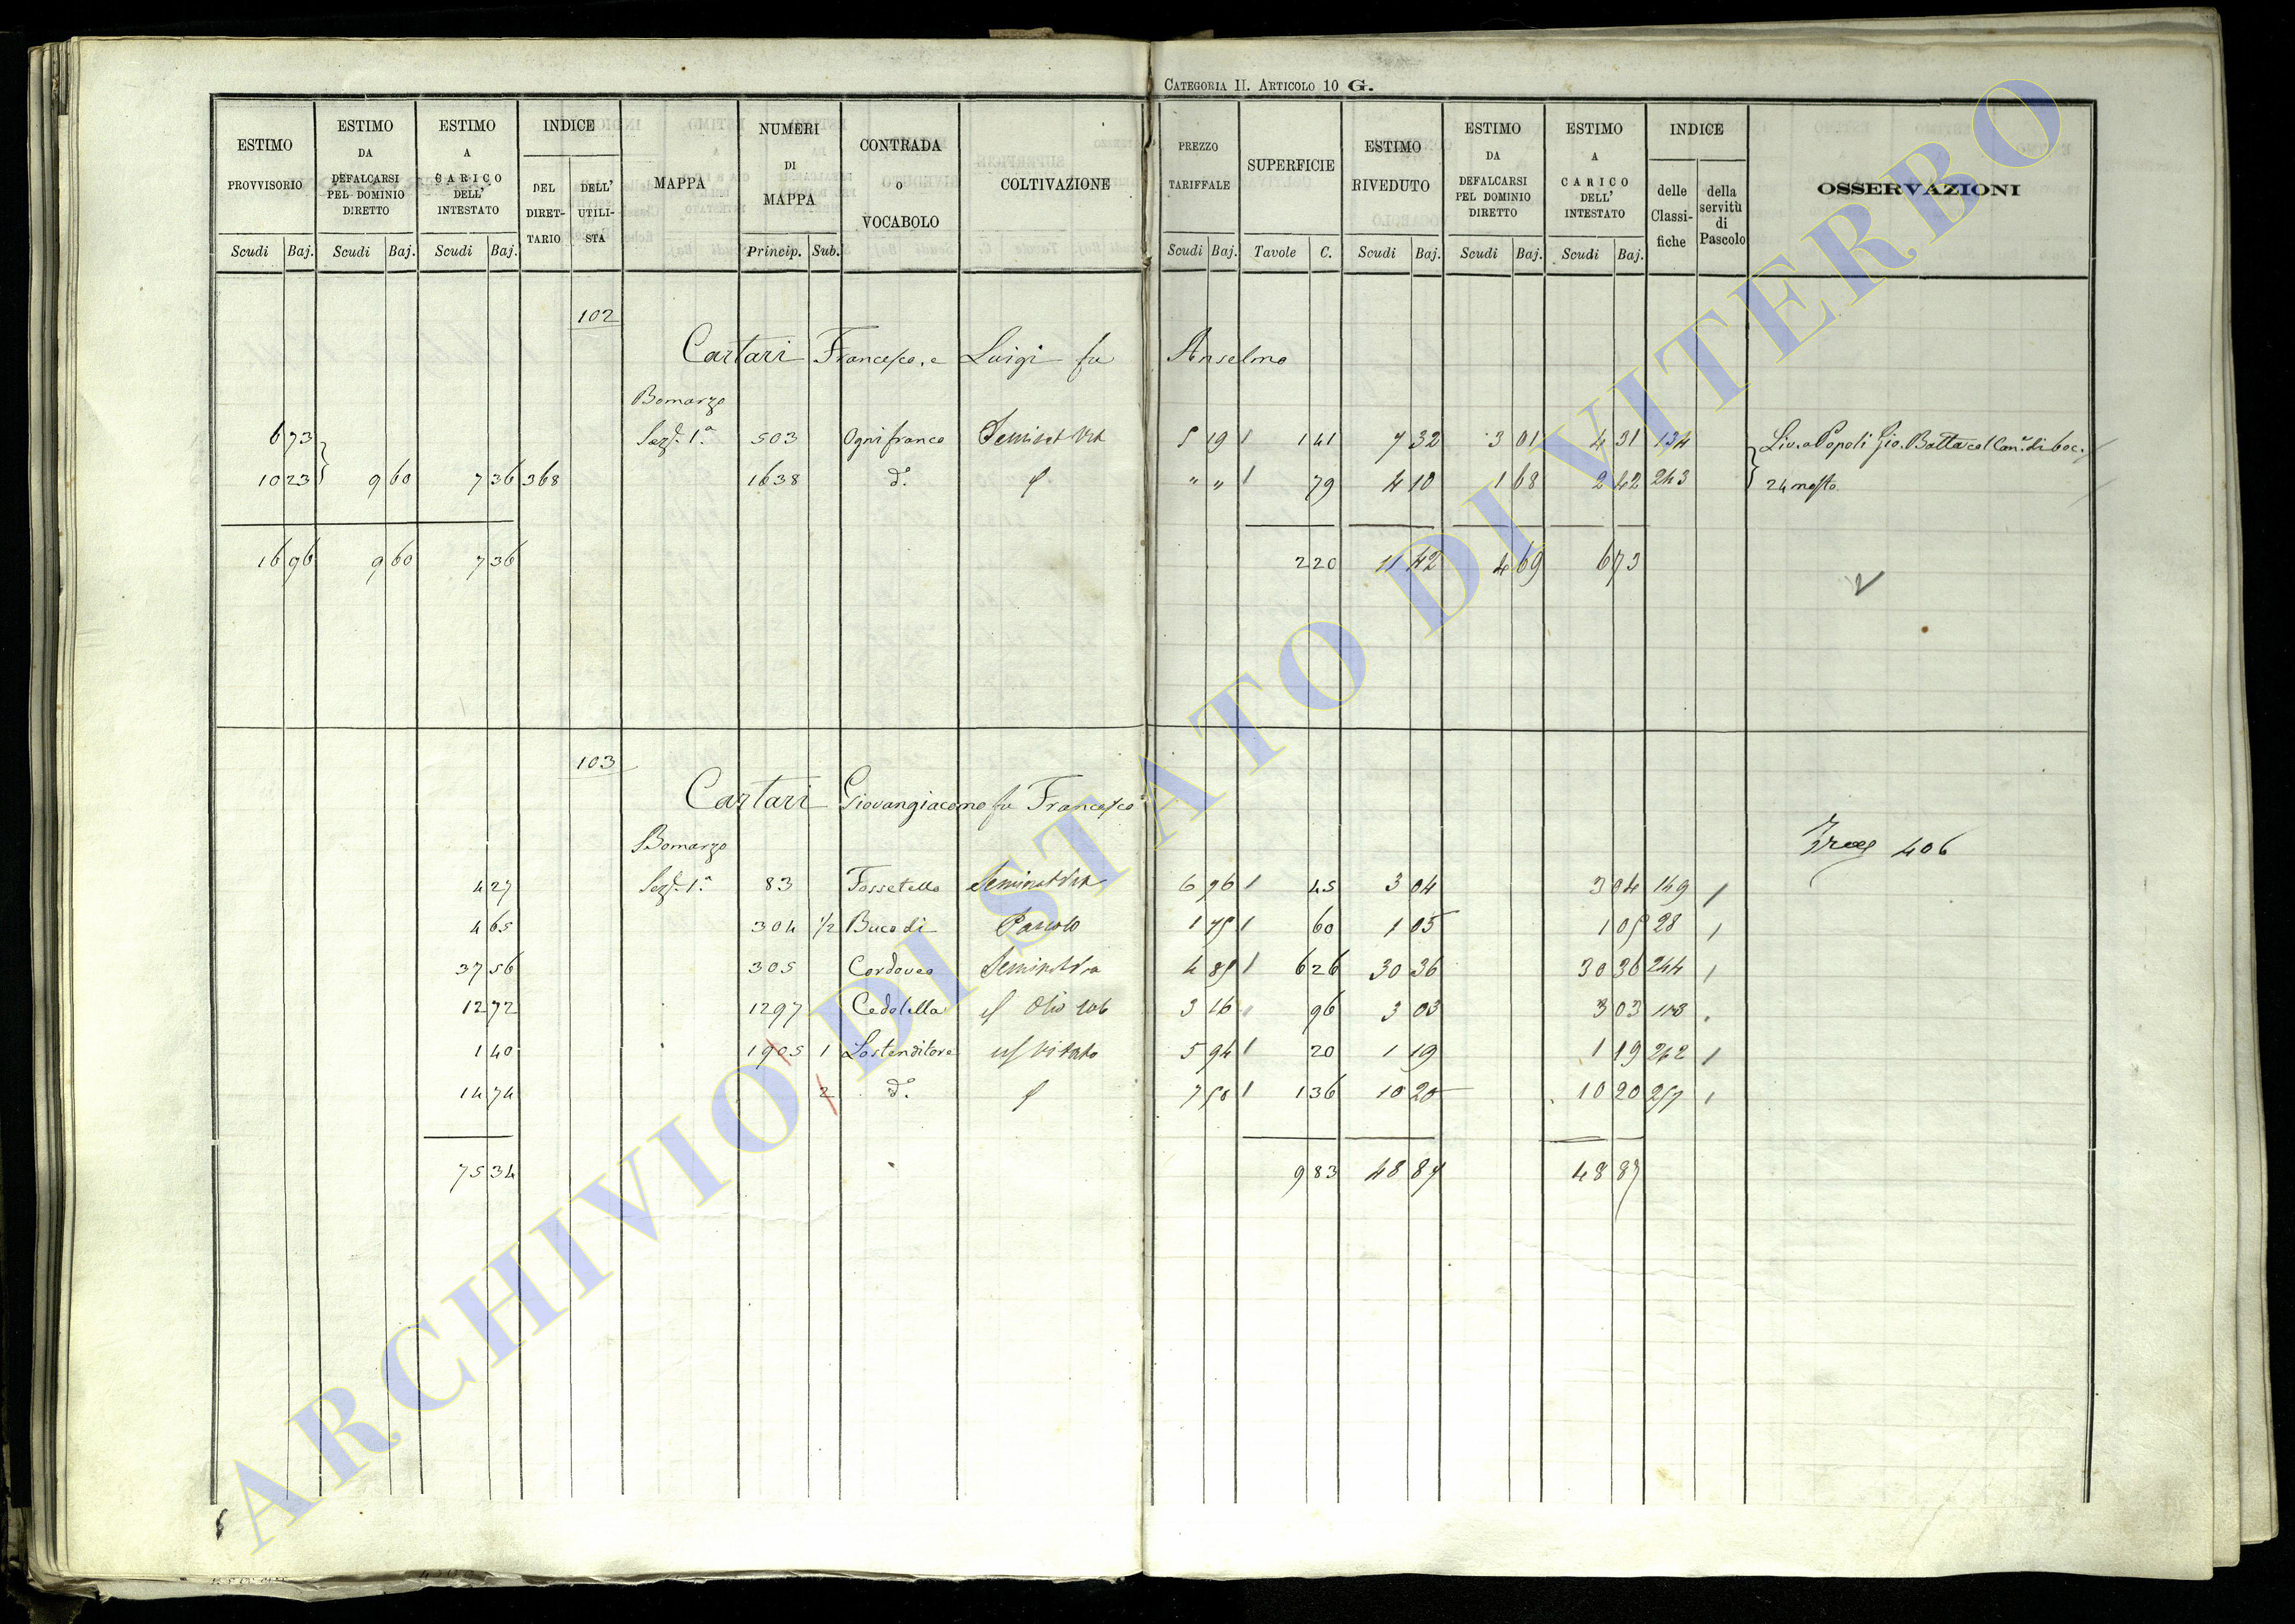 CATEGORIA II. ARTICOLO 10 G.
ESTIMO PROVVISORIO Scudi Baj.
ESTIMO DA DEFALCARSI PEL DOMINIO DIRETTO Scudi Baj.
ESTIMO A CARICO DELL' INTESTATO Scudi Baj.
INDICE DEL DIRET-TARIO DELL' UTILI-STA
MAPPA
NUMERI DI MAPPA Princip. Sub.
CONTRADA O VOCABOLO
COLTIVAZIONE
PREZZO TARIFFALE Scudi Baj.
SUPERFICIE Tavole C.
ESTIMO RIVEDUTO Scudi Baj.
ESTIMO DA DEFALCARSI PEL DOMINIO DIRETTO Scudi Baj.
ESTIMO A CARICO DELL' INTESTATO Scudi Baj.
INDICE delle Classi-fiche della servitù di Pascolo
OSSERVAZIONI
102
Cartari Francesco, e Luigi fu Anselmo
Bomarzo
6 73 Sez.e 1.a 503 Ognifranco Seminat Vit 5 19 1 41 7 32 3 01 4 31 134 Liv. a Popoli Gio. Batta col Can.e di boc.
10 23 9 60 7 36 368 1638 d.o " " 79 4 10 1 68 2 42 243 24 mosto
16 96 9 60 7 36 2 20 11 42 4 69 6 73
103
Cartari Giovangiacomo fu Francesco
Bomarzo 406
4 27 Sez.e 1.a 83 Fossatello Seminat Vit 6 76 45 3 04 3 04 149
4 65 304 1/2 Buco di Pascolo 1 75 60 1 05 1 05 28
37 56 305 Cordoveo 4 85 6 26 30 36 30 36 244
12 72 1297 Cedolella 3 16 96 3 03 3 03 118
1 40 1905 1 Lostenditore Vitato 5 94 20 1 19 1 19 262
14 74 2 d.o 7 50 1 36 10 20 10 20 257
75 34 9 83 48 87 48 87
ARCHIVIO DI STATO DI VITERBO